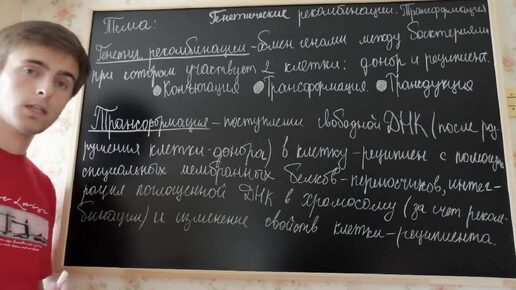 Тема: Генетические рекомбинации: Трансформация
Генетич. рекомбинации - обмен генами между бактериями
при котором участвует 2 клетки: донор и реципиент.
Конъюгация Трансформация. Трансдукция
Трансформация - поступлении свободной ДНК (после раз-
рушения клетки-донора) в клетку-реципиент с помощью
специальных мембранных белков-переносчиков, интег-
рация поглощенной ДНК в хромосому (за счет реком-
бинации) и изменение свойств клетки-реципиента.